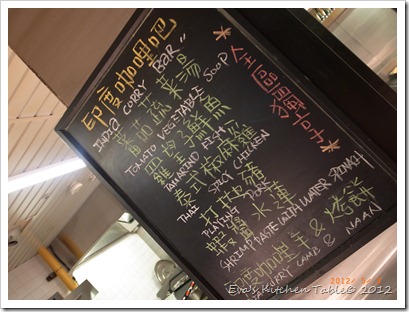 印度咖哩吧
INDIA CURRY BAR"
全區獨享
蕃茄蔬菜湯
TOMATO VEGETABLE SOUP
羅望子鮮魚
TAMARIND FISH
泰式椒麻雞
THAI SPICY CHICKEN
打拋豬
PLAYING PORK
蝦醬水蓮
SHRIMP PASTE WITH WATER SPINACH
印度咖哩羊 & 烤餅
CURRY LAMB & NAAN
Eva's Kitchen Table© 2012